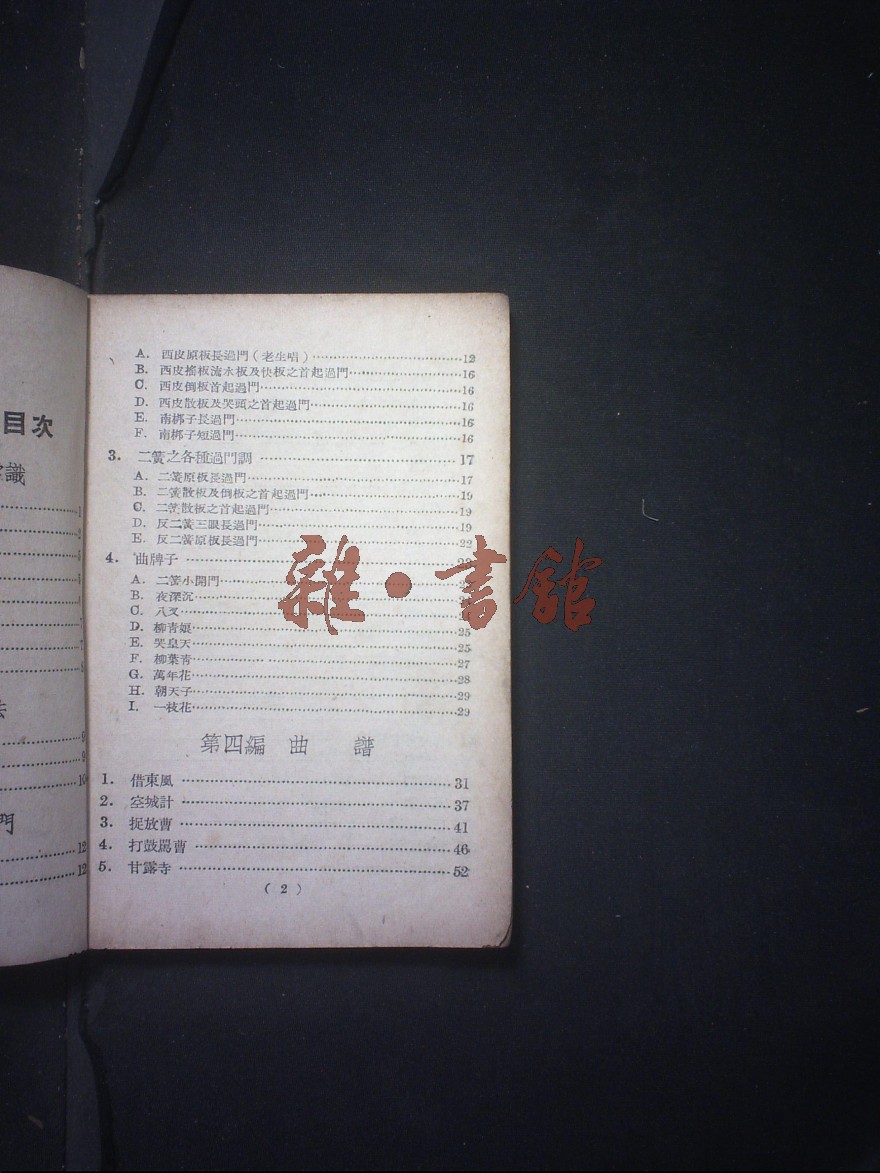 目次
識
1
2
5
7
7
9
9
10
門
12
12
A. 西皮原板長過門(老生唱)……12
B. 西皮搖板流水板及快板之首起過門……16
C. 西皮倒板首起過門……16
D. 西皮散板及哭頭之首起過門……16
E. 南梆子長過門……16
F. 南梆子短過門……16
3. 二簧之各種過門調……17
A. 二簧原板長過門……17
B. 二簧散板及倒板之首起過門……19
C. 二簧散板之首起過門……19
D. 反二簧三眼長過門……19
E. 反二簧原板長過門……22
4. 曲牌子……
A. 二簧小開門……
B. 夜深沉……
C. 八叉……
D. 柳青娘……25
E. 哭皇天……25
F. 柳葉青……27
G. 萬年花……28
H. 朝天子……29
I. 一枝花……29
雜·書館
第四編 曲 譜
1. 借東風……31
2. 空城計……37
3. 捉放曹……41
4. 打鼓罵曹……46
5. 甘露寺……52
(2)